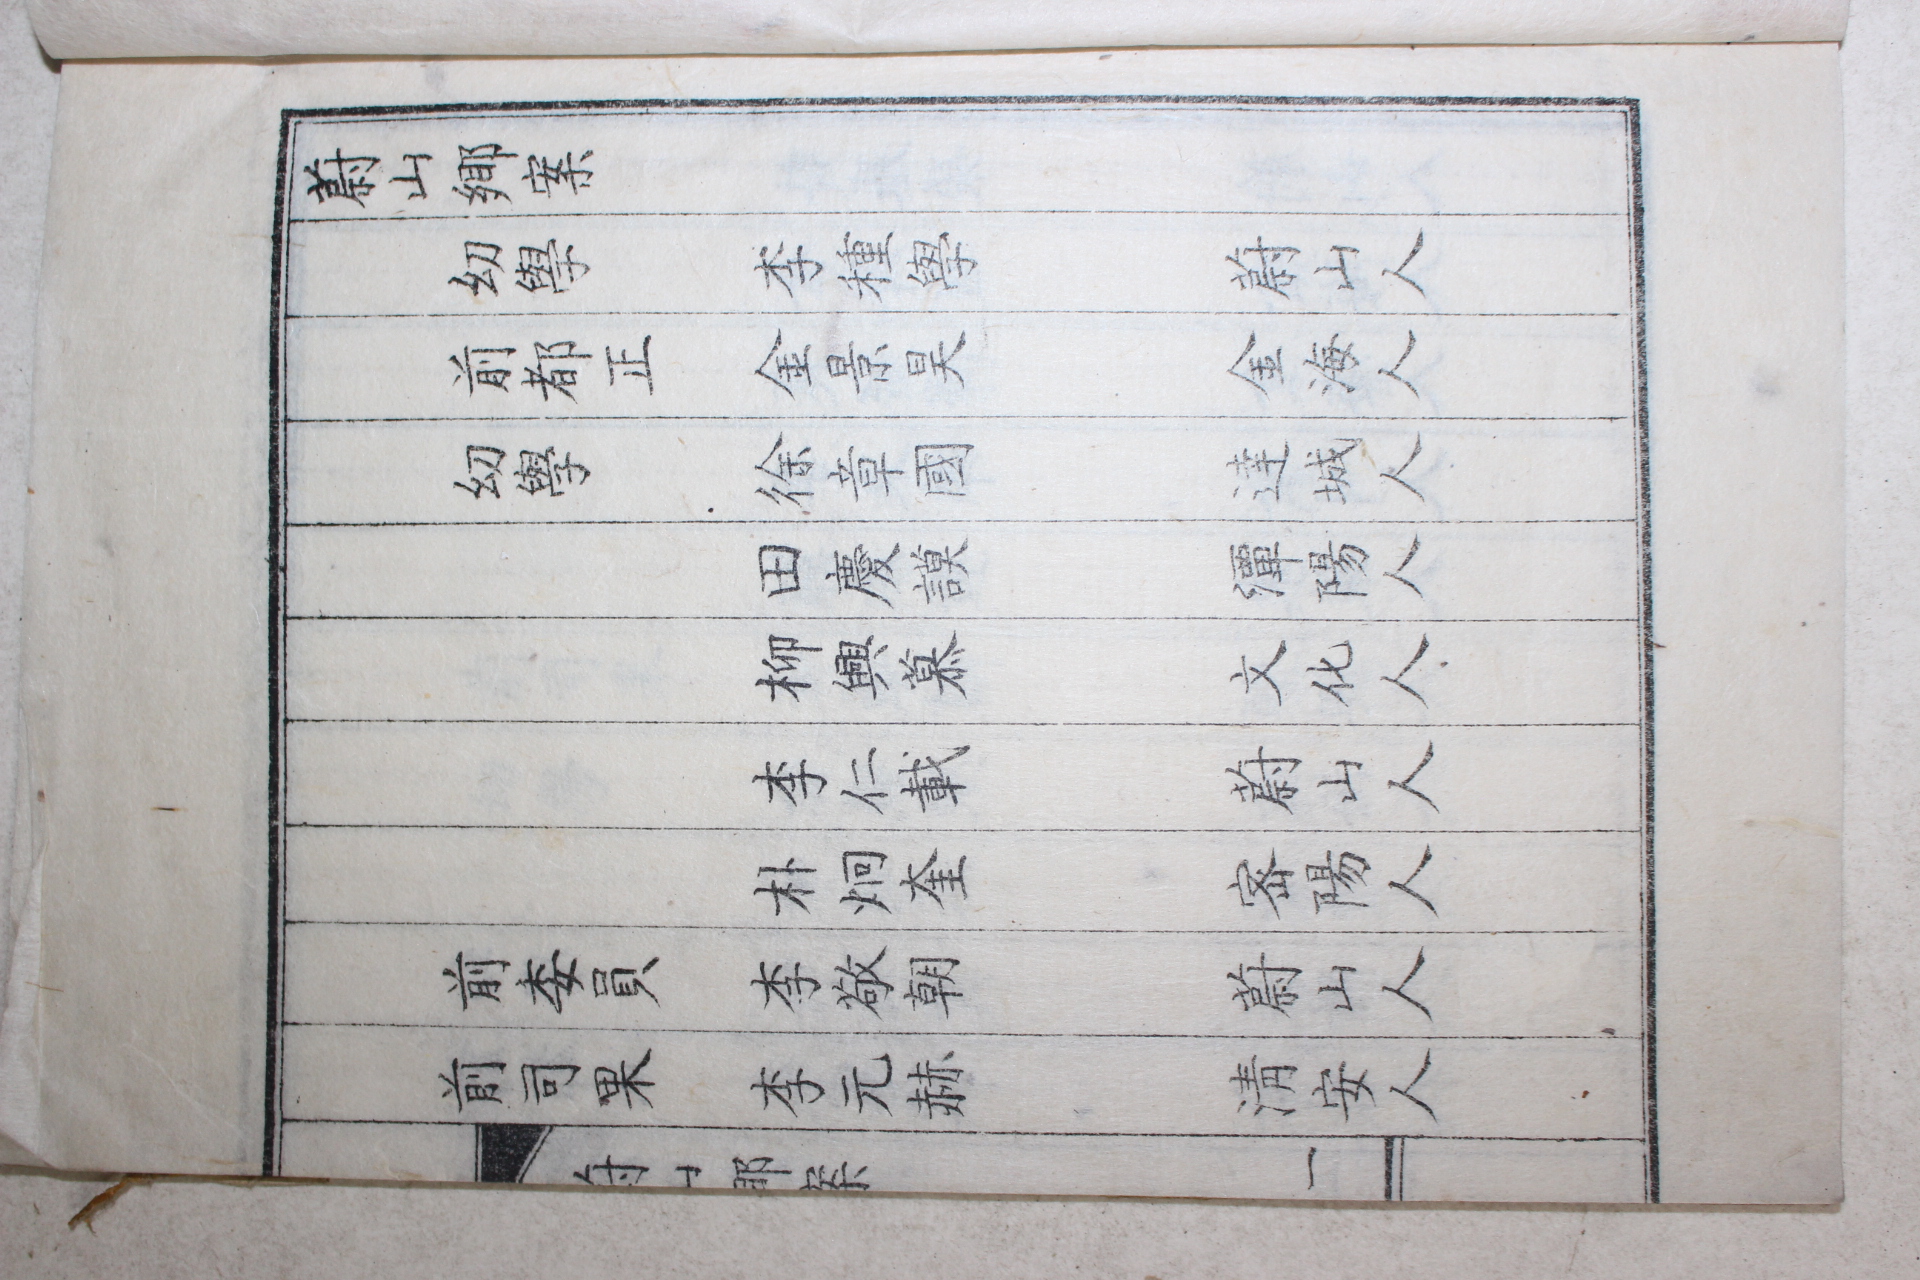 蔚山鄕案
幼學 李種學 蔚山人
前都正 金景昊 金海人
幼學 徐章國 達城人
田慶謨 潭陽人
柳興慕 文化人
李仁載 蔚山人
朴炯奎 密陽人
前委員 李敬朝 蔚山人
前司果 李元赫 淸安人
蔚山鄕案 一